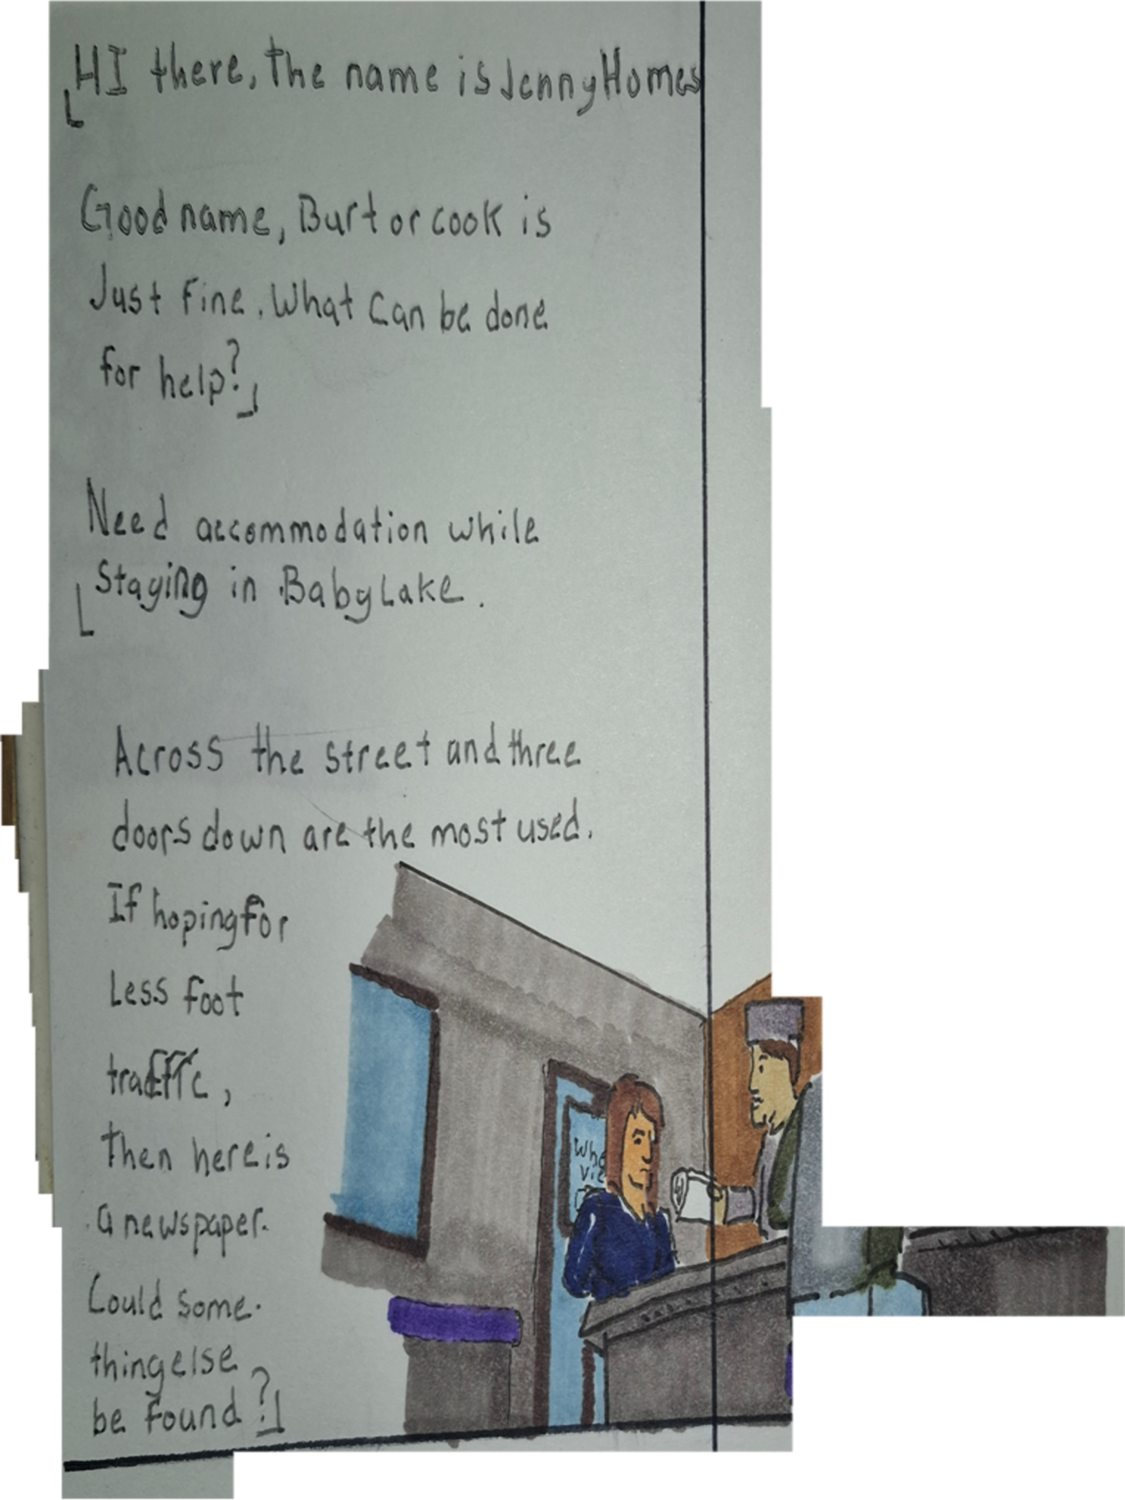 「HI there, The name is Jenny Homes
Good name, Burt or cook is
Just fine. What Can be done
for help?」
Need accommodation while
「Staying in Baby Lake.
Across the street and three
doors down are the most used.
If hoping for
Less foot
traffic,
Then here is
a newspaper.
Could some.
thing else
be found?」